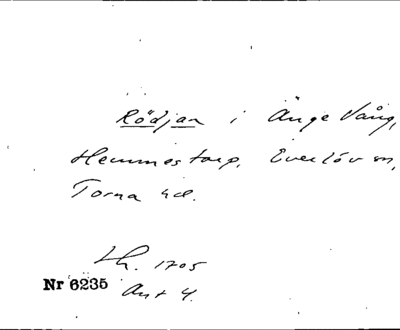 Rödjan i Änge Vång,
Hemmestorp, Everlöv sn,
Torna hd.
Lh. 1705
Nr 6235
Akt 4.